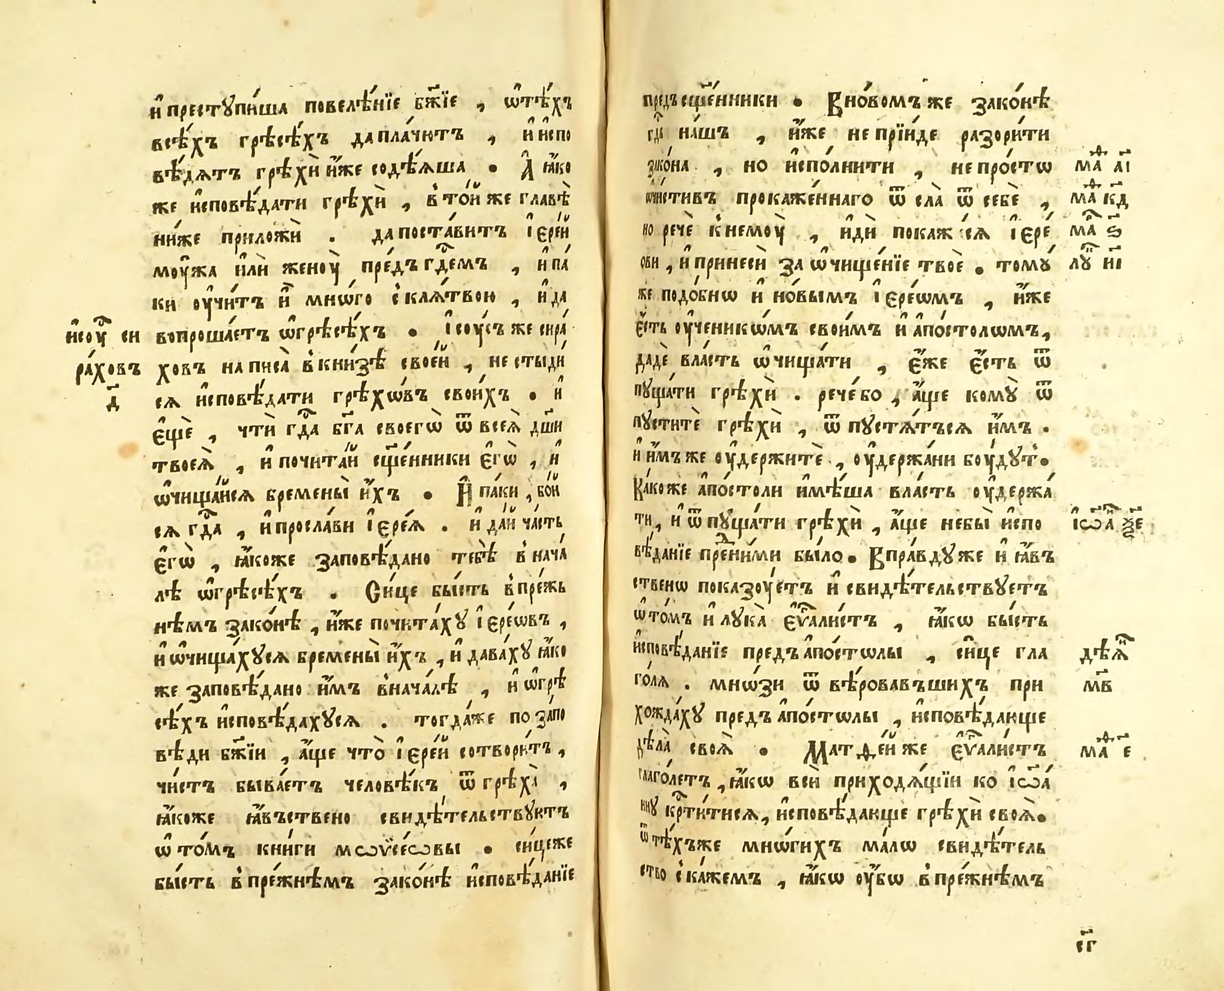 и҆ престꙋпиша повелѣ́нїе бж҃їе , ѡ҆тѣ́хъ
всѣ́хъ грѣсѣ́хъ да пла́чютъ , и҆ и҆спо
вѣ́дѧтъ грѣхѝ и҆́же содѣ́ѧша . А҆ ꙗ҆́ко
же и҆сповѣ́дати грѣхѝ , в то́й же главѣ̀
ни́же приложѝ . да поста́витъ і҆ере́й
моу́жа и҆лѝ женоу̀ пре́дъ гдⷭ҇емъ , и҆ па
ки оу҆чи́тъ и҆̀ мно́го с клѧ́твою , и҆ да
и҆соуⷭ҇ си вопроша́етъ ѡ҆грѣсѣ́хъ . І҆соу́съ же сира́
ра́ховъ ховъ написа̀ в кни́зѣ свое́й , не стыди́
д҃ сѧ и҆сповѣ́дати грѣхѡ́въ свои́хъ . и҆
є҆щѐ , чтѝ гдⷭ҇а бг҃а своегѡ̀ ѿ всеѧ̀ дш҃и
твоеѧ̀ , и҆ почита́й сщ҃е́нники є҆гѡ̀ , и҆
ѡ҆чища́йсѧ бремены̀ и҆́хъ . И҆ па́ки , бо́й
сѧ гдⷭ҇а , и҆ просла́ви і҆ере́ѧ . и҆ да́й ча́сть
є҆гѡ̀ , ꙗ҆́коже заповѣ́дано тебѣ̀ в нача́
лѣ ѡ҆грѣсѣ́хъ . Си́це бы́сть в пре́жь
нѣмъ зако́нѣ , и҆́же почита́хꙋ і҆ере́ѡвъ ,
и҆ ѡ҆чища́хꙋсѧ бремены̀ и҆́хъ , и҆ дава́хꙋ ꙗ҆́ко
же запове́дано и҆́мъ внача́лѣ , и҆ ѡ҆грѣ
сѣ́хъ и҆сповѣ́дахꙋсѧ . тогда́же по запо
вѣди бж҃їи , а҆́ще что̀ і҆ере́й сотвори́тъ ,
чи́стъ быва́етъ человѣ́къ ѿ грѣха̀ ,
ꙗ҆́коже ꙗ҆́въствено свидѣ́тельствꙋютъ
ѡ҆ то́мъ книги мѡѷсе́ѡвы . си́цеже
бы́сть в пре́жнѣмъ зако́нѣ и҆сповѣ́данїе
предъ сщ҃е́нники . В но́вомъ же зако́нѣ
гдⷭ҇ь на́шъ , и҆́же не прїи́де разори́ти
зако́на , но и҆спо́лнити , не про́стѡ маⷴ҇ аі
ѡ҆чи́стивъ прокаже́ннаго ѿсла̀ ѿ себѐ , маⷴ҇ кд
но речѐ к немоу̀ , и҆дѝ покажи́сѧ і҆ере́ маⷬ҇ ѕ҃
ови , и҆ принесѝ за ѡ҆чище́нїе твоѐ . томꙋ́ лꙋⷦ҇ иі
же подо́бнѡ и҆ но́вымъ і҆ере́ѡмъ , и҆́же
є҆́сть оу҆ченикѡ́мъ свои́мъ и҆ а҆по́столомъ,
дадѐ вла́сть ѡ҆чища́ти , є҆́же є҆́сть ѿ
пꙋща́ти грѣхѝ . рече́ бо , а҆́ще комꙋ̀ ѿ
пꙋститѐ грѣхѝ , ѿпꙋстѧ́тъсѧ и҆́мъ .
и҆ и҆́мъ же оу҆держитѐ , оу҆держа́ни боу́дꙋт.
Ка́ко же а҆по́столи и҆мѣ́ша вла́сть оу҆держа́
ти , и҆ ѿпꙋща́ти грѣхѝ , а҆́ще не бы̀ и҆спо і҆ѡⷩ҇а ѯе
вѣ́данїе пред ни́ми было . В пра́вдꙋ же и҆ ꙗ҆́в
ственѡ показꙋ́етъ и҆ свидѣ́тельствꙋетъ
ѡ҆ то́мъ и҆ лꙋка̀ є҆ѵⷢ҇али́стъ , ꙗ҆́кѡ бы́сть
и҆сповѣ́данїе предъ а҆по́столы , си́це гла дѣѧⷩ҇
го́лѧ . мно́зи ѿ вѣ́ровавъшихъ при мв
хожда́хꙋ предъ а҆по́столы , и҆сповѣ́дающе
дѣла̀ своѧ̀ . Матѳе́й же є҆ѵⷢ҇али́стъ маⷴ҇ е
глаго́летъ , ꙗ҆́кѡ всѝ приходѧ́щїи ко і҆ѡа́
ннꙋ крⷭ҇ти́тисѧ , и҆сповѣ́дающе грѣхѝ своѧ̀.
ѿ тѣ́хъже мно́гихъ ма́лѡ свидѣ́тель
ство ска́жемъ , ꙗ҆́кѡ оу҆́бѡ в пре́жнемъ
сг҃